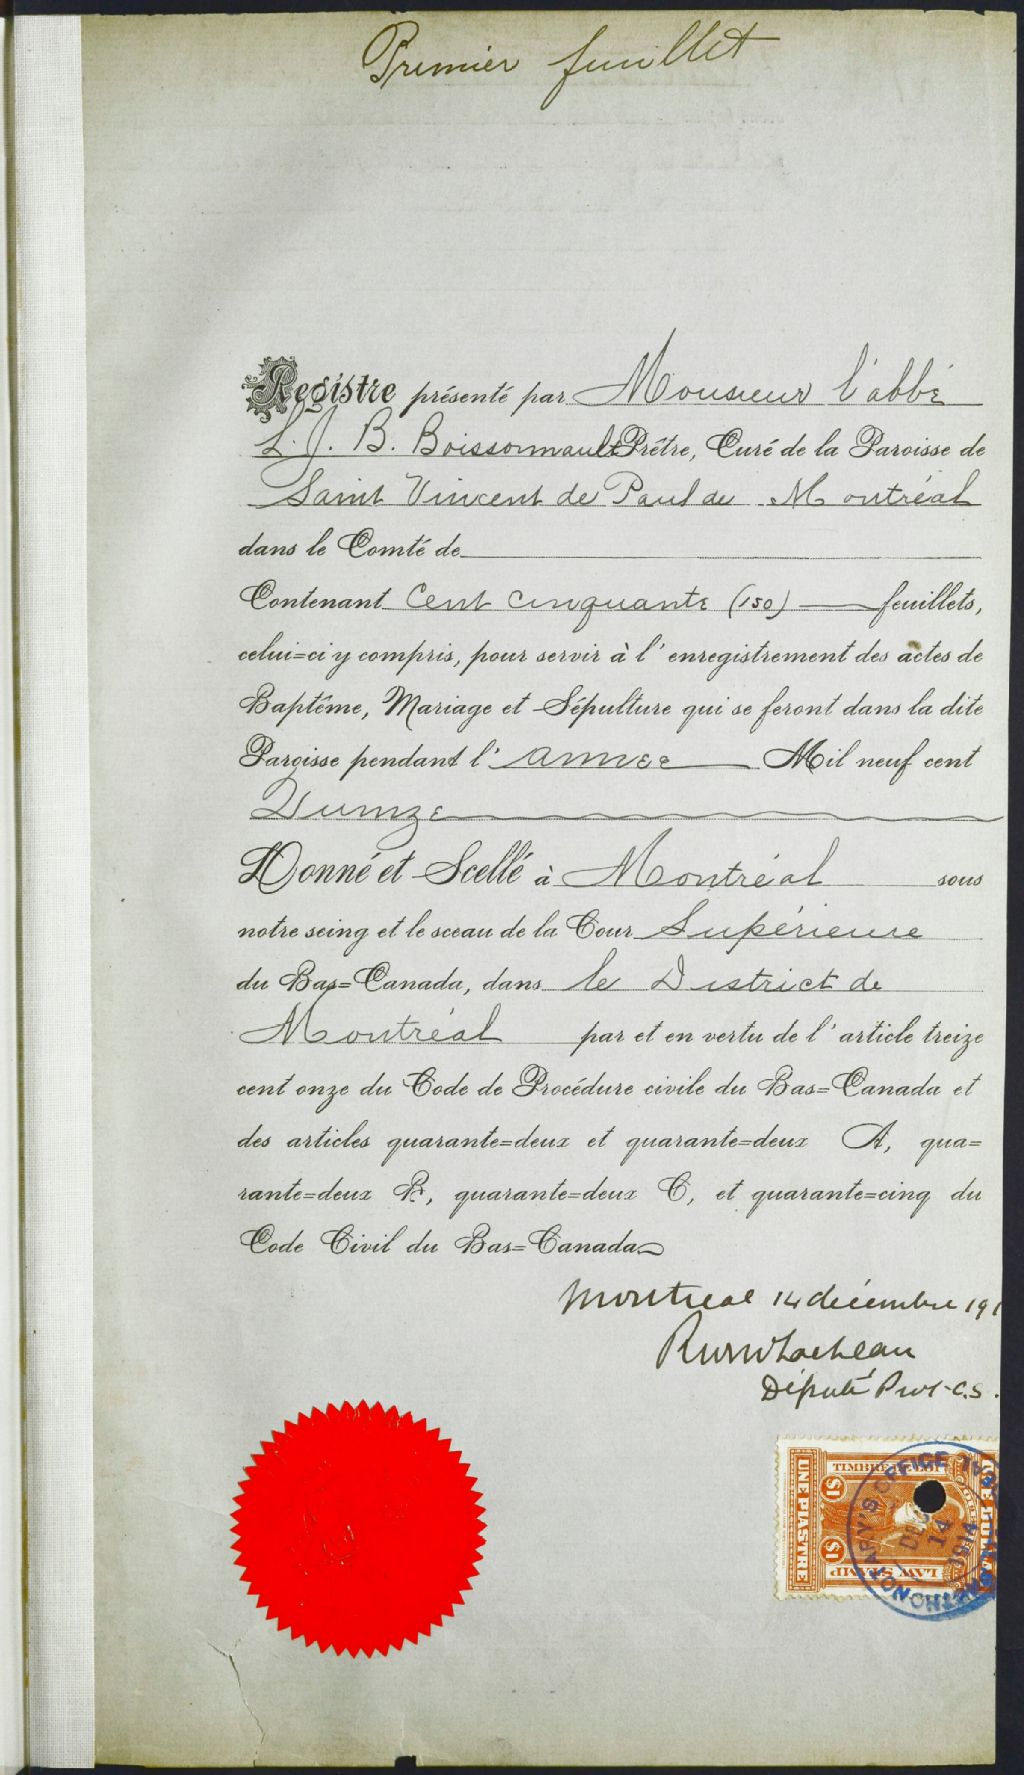 Premier feuillet
Registre présenté par Monsieur l'abbé
L. J. B. Boissonnault Prêtre, Curé de la Paroisse de
Saint Vincent de Paul de Montréal
dans le Comté de
Contenant Cent cinquante (150) feuillets,
celui=ci y compris, pour servir à l'enregistrement des actes de
Baptême, Mariage et Sépulture qui se feront dans la dite
Paroisse pendant l'année Mil neuf cent
Quinze
Donné et Scellé à Montréal sous
notre seing et le sceau de la Cour Supérieure
du Bas=Canada, dans le District de
Montréal par et en vertu de l'article treize
cent onze du Code de Procédure civile du Bas=Canada et
des articles quarante=deux et quarante=deux A, qua=
rante=deux B, quarante=deux C, et quarante=cinq du
Code Civil du Bas=Canada
Montreal 14 décembre 191
Député Prot. C.S.
TIMBRE
UNE PIASTRE
$1 $1
LAW STAMP
OFFICE
DEC
14
1914